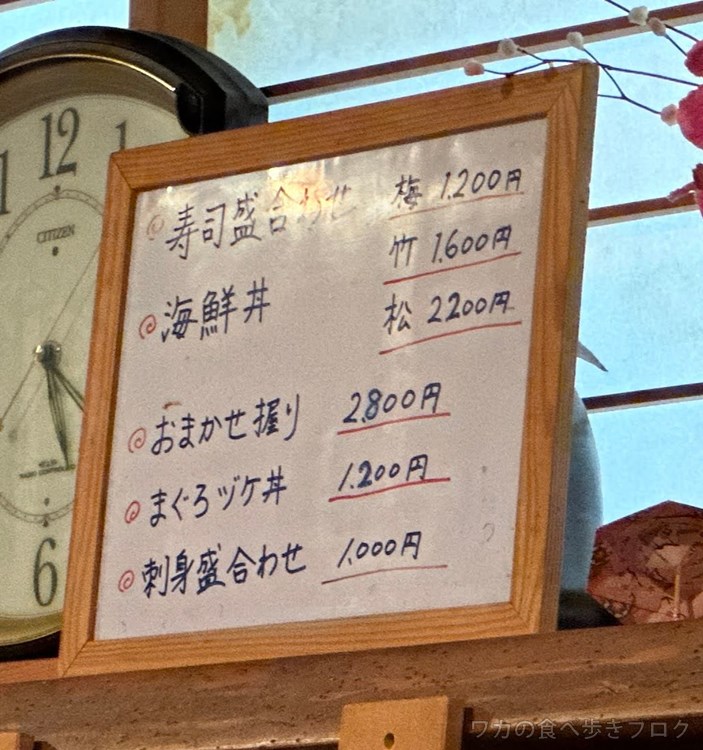 12
1
1
CITIZEN
6
寿司盛合わせ 梅 1.200円
竹 1.600円
海鮮丼 松 2200円
おまかせ握り 2.800円
まぐろヅケ丼 1.200円
刺身盛合わせ 1.000円
ワカの食べ歩きブログ